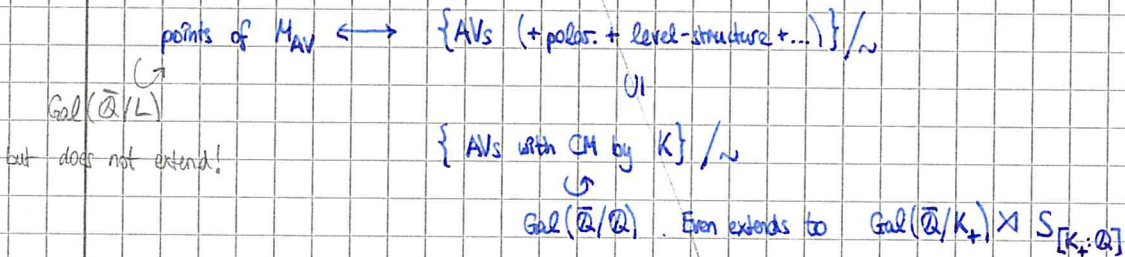 points of M_AV ⟷ {AVs (+ polar. + level-structure + ...)}/~
Gal(Q̄/L)
∪|
but does not extend!
{AVs with CM by K}/~
Gal(Q̄/Q). Even extends to Gal(Q̄/K₊) ⋊ S_[K₊:Q]